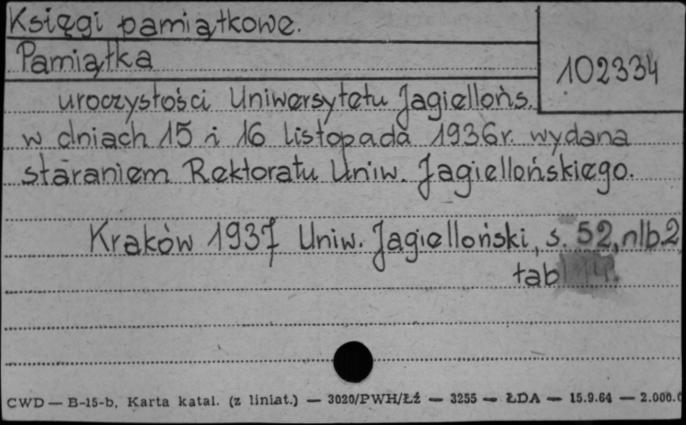 Księgi pamiątkowe.
102334
Pamiątka
uroczystości Uniwersytetu Jagiellońs.
w dniach 15 i 16 listopada 1936r. wydana
staraniem Rektoratu Uniw. Jagiellońskiego.
Kraków 1937 Uniw. Jagielloński, s. 52, nlb.2
tab 14.
CWD — B-15-b, Karta katal. (z liniat.) — 3020/PWH/Łź — 3255 — ŁDA — 15.9.64 — 2.000.0